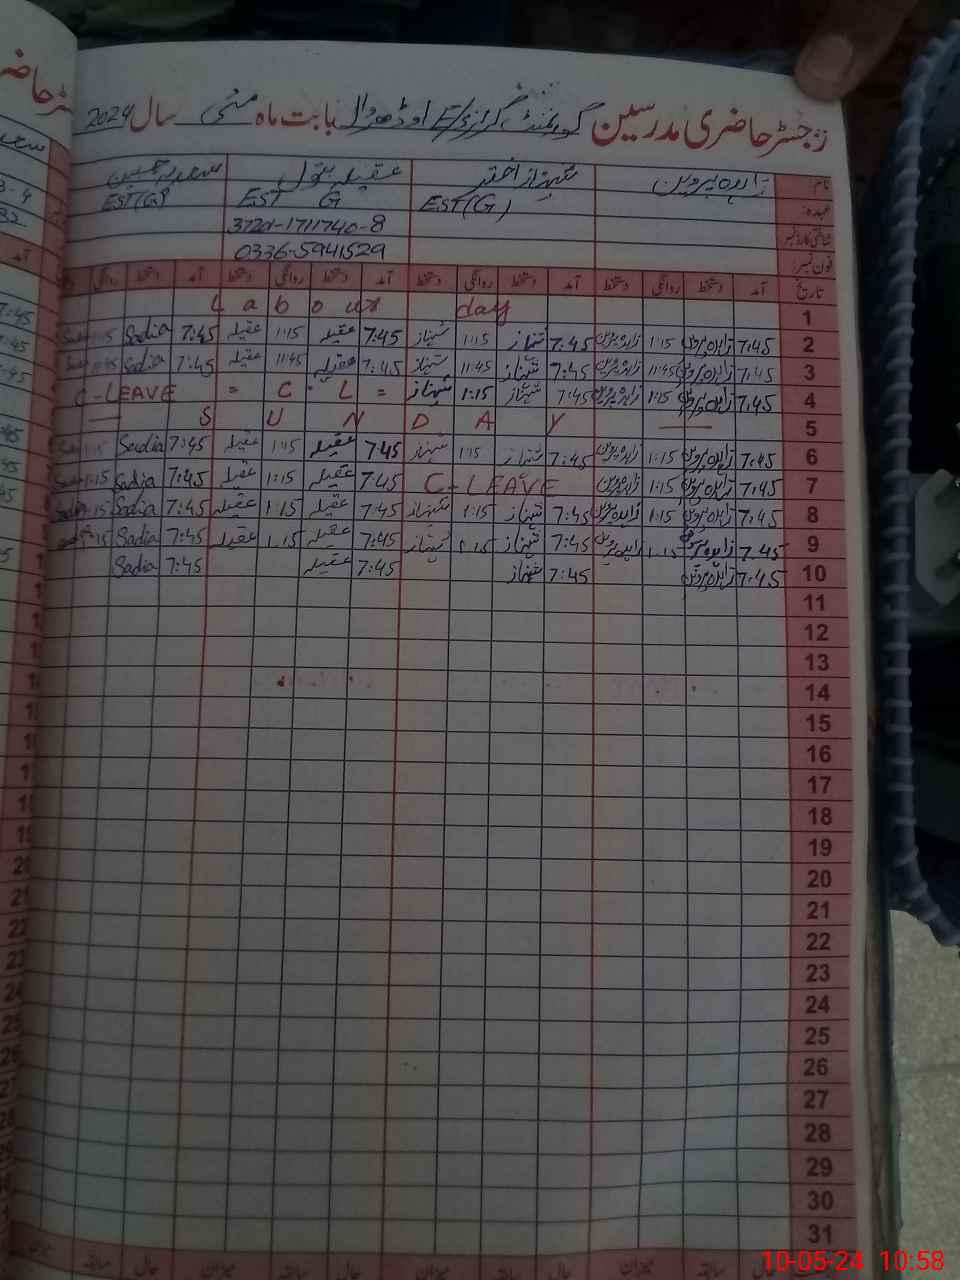 رجسٹر حاضری مدرسین گورنمنٹ گرلز E/S اوڈھروال بابت ماہ مئی سال 2024
نام زاہدہ پروین شہناز اختر عقیلہ بتول سعدیہ
عہدہ: EST(G) EST G EST(G)
شناختی کارڈ نمبر 37201-1711740-8
فون نمبر: 0336-5941529
تاریخ آمد دستخط روانگی دستخط آمد دستخط روانگی دستخط آمد دستخط روانگی دستخط آمد دستخط روانگی
1 Labour day
2 7:45 زاہدہ پروین 1:15 زاہدہ پروین 7:45 شہناز 1:15 شہناز 7:45 عقیلہ 1:15 عقیلہ 7:45 Sadia 1:15
3 7:45 زاہدہ پروین 11:45 زاہدہ پروین 7:45 شہناز 11:45 شہناز 7:45 عقیلہ 11:45 عقیلہ 7:45 Sadia 11:45
4 7:45 زاہدہ پروین 1:15 زاہدہ پروین 7:45 شہناز 1:15 شہناز = C.L = C-LEAVE
5 SUNDAY
6 7:45 زاہدہ پروین 1:15 زاہدہ پروین 7:45 شہناز 1:15 شہناز 7:45 عقیلہ 1:15 عقیلہ 7:45 Sadia 1:15
7 7:45 زاہدہ پروین 1:15 زاہدہ پروین C-LEAVE 7:45 عقیلہ 1:15 عقیلہ 7:45 Sadia 1:15
8 7:45 زاہدہ پروین 1:15 زاہدہ پروین 7:45 شہناز 1:15 شہناز 7:45 عقیلہ 1:15 عقیلہ 7:45 Sadia 1:15
9 7:45 زاہدہ پروین 1:15 زاہدہ پروین 7:45 شہناز 1:15 شہناز 7:45 عقیلہ 1:15 عقیلہ 7:45 Sadia 1:15
10 7:45 زاہدہ پروین 7:45 شہناز 7:45 عقیلہ 7:45 Sadia
11
12
13
14
15
16
17
18
19
20
21
22
23
24
25
26
27
28
29
30
31
حال سابقہ میزان حال سابقہ میزان حال سابقہ میزان حال سابقہ میزان
10-05-24 10:58